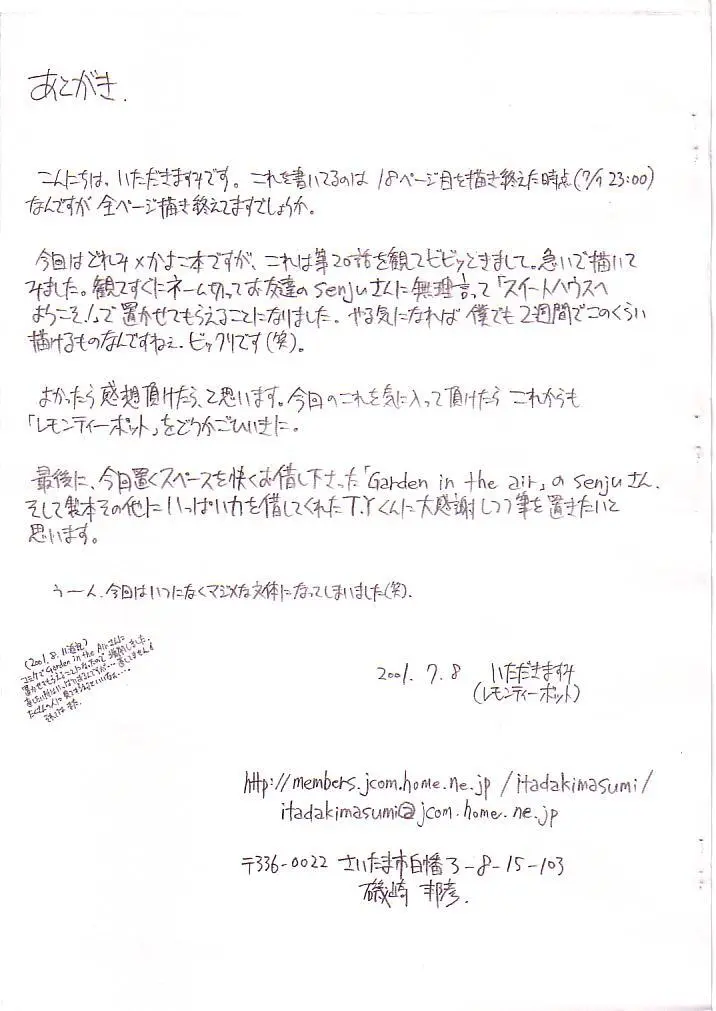 あとがき.
こんにちは、いただきますみです。これを書いてるのは 18ページ目を描き終えた時点(7/7 23:00)
なんですが 全ページ描き終えてますでしょうか。
今回はどれみ×かよこ本ですが、これは第20話を観てビビッときまして。急いで描いて
みました。観てすぐにネーム切ってお友達のsenjuさんに無理言って「スイートハウスへ
ようこそ!」で置かせてもらえることになりました。やる気になれば 僕でも2週間でこのくらい
描けるものなんですねぇ.ビックリです(笑)。
よかったら感想頂けたら、と思います。今回のこれを気に入って頂けたら これからも
「レモンティーポット」をどうかごひいきに。
最後に、今回置くスペースを快くお借し下さった「Garden in the air」のsenjuさん、
そして製本その他にいっぱい力を借してくれたT.Yくんに大感謝しつつ筆を置きたいと
思います。
うーん、今回はいつになくマジメな文体になってしまいました(笑).
(2001.8.11追記)
コミケで"Garden in the Air"さんに
置かせてもらえることになったので 増刷しました。
2001.7.8 いただきますみ
(レモンティーポット)
http://members.jcom.home.ne.jp/itadakimasumi/
itadakimasumi@jcom.home.ne.jp
〒336-0022 さいたま市白幡3-8-15-103
磯崎 邦彦.